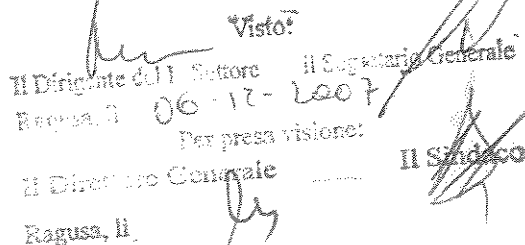 Visto:
Il Dirigente del I Settore Il Segretario Generale
Ragusa, lì 06-12-2007
Per presa visione:
Il Direttore Generale Il Sindaco
Ragusa, lì